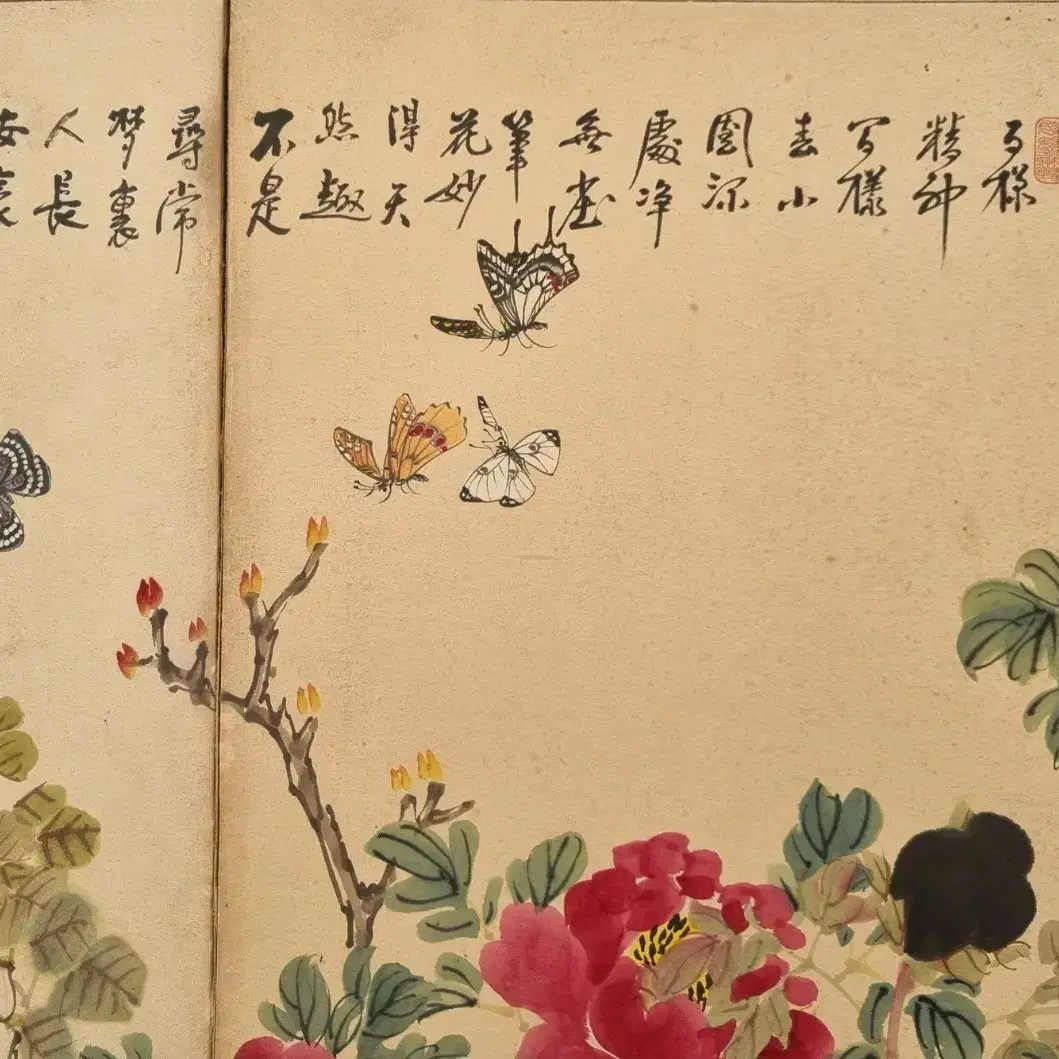 百樣
精神
百樣
春小
園深
處淨
無塵
筆
花妙
得天
然趣
不是
尋常
夢裏
人長